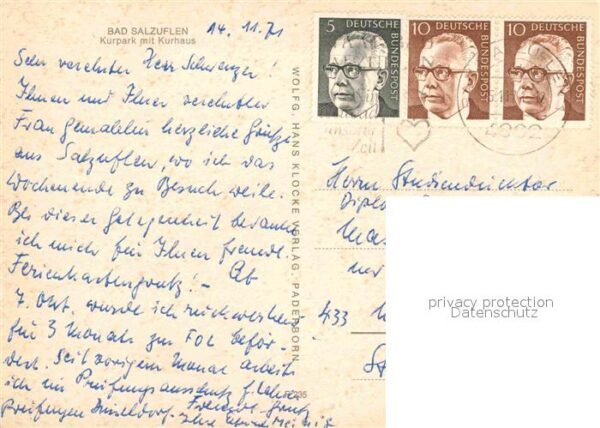 BAD SALZUFLEN
Kurpark mit Kurhaus
14. 11. 71
Sehr verehrter Herr Schwenger!
Ihnen und Ihrer verehrten
Frau Gemahlin herzliche Grüße
aus Salzuflen, wo ich das
Wochenende zu Besuch weile.
Bei dieser Gelegenheit bedanke
ich mich für Ihren freundl.
Ferienkartengruß! – Ab
7. Okt. wurde ich rückwirkend
für 3 Monate zur beför-
dert. Seit vorigem Monat arbeite
ich im Prüfungsausschuß f. Lehrer
prüfungen Düsseldorf. Freundl. Grüße
Ihre
WOLFG. HANS KLOCKE VERLAG, PADERBORN
5
DEUTSCHE
BUNDESPOST
10
DEUTSCHE
BUNDESPOST
10
DEUTSCHE
BUNDESPOST
unserer
Zeit
Herrn Studiendirektor
433
privacy protection
Datenschutz